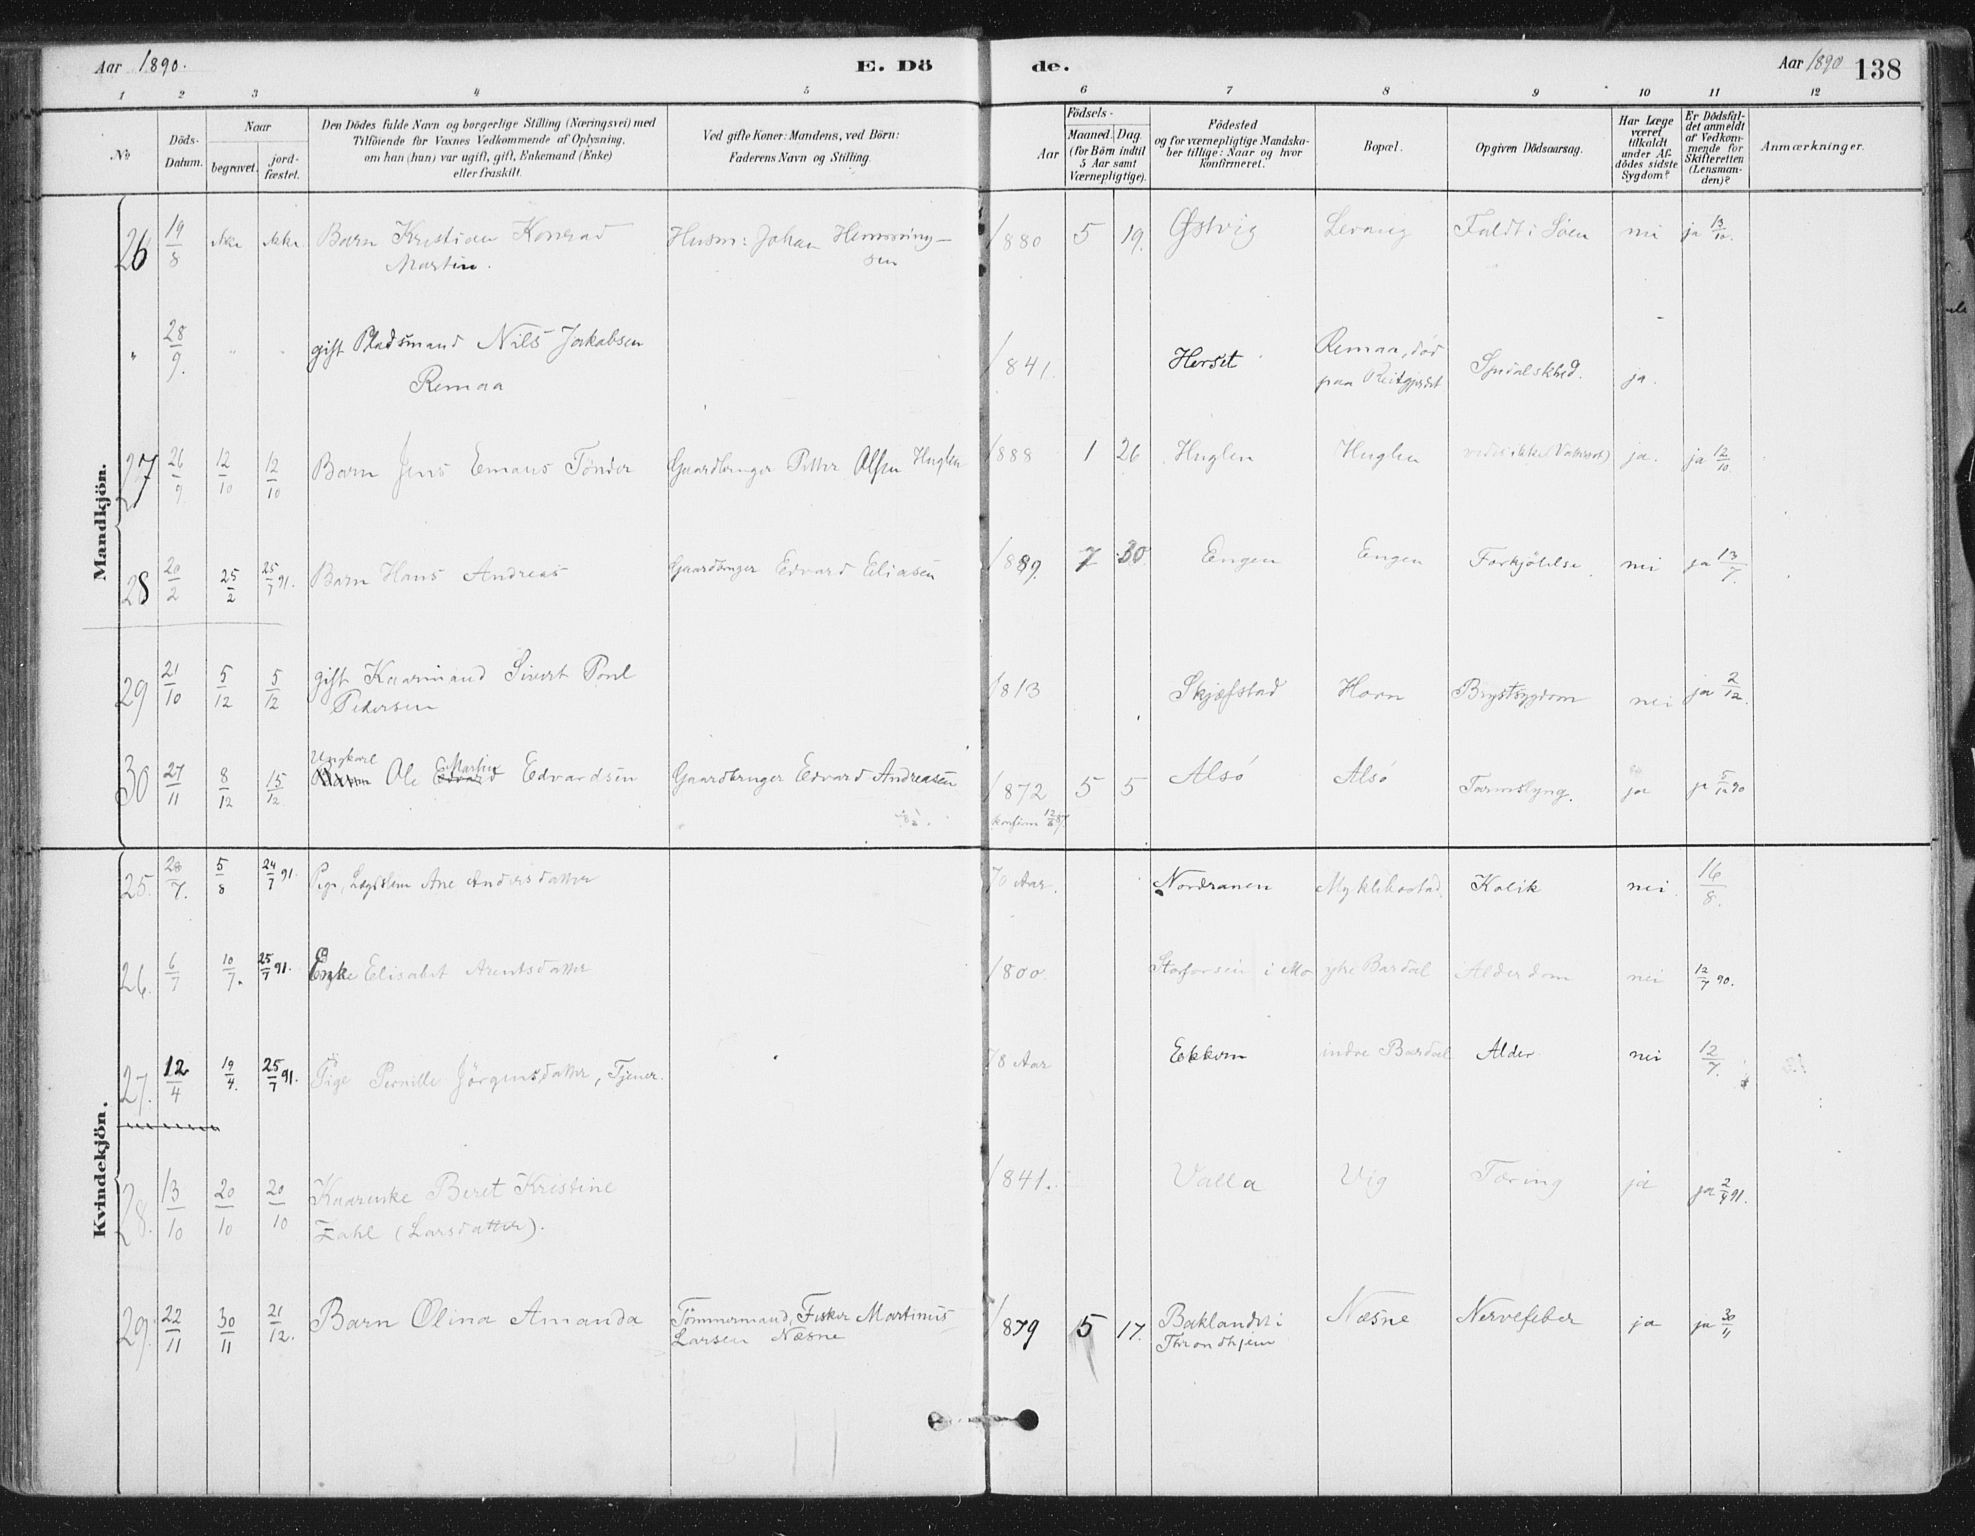 Aar 1890.
E. Dö
de.
Aar 1890
138
1 2 3 4 5 6 7 8 9 10 11 12
No
Döds-
Datum.
Naar
begravet.
jord-
fæstet.
Den Dödes fulde Navn og borgerlige Stilling (Næringsvei) med
Tilföiende for Voxnes Vedkommende af Oplysning,
om han (hun) var ugift, gift, Enkemand (Enke)
eller fraskilt.
Ved gifte Koner: Mandens, ved Börn:
Faderens Navn og Stilling.
Födsels-
Aar
Maaned. Dag.
(for Börn indtil
5 Aar samt
Værnepligtige).
Födested
og for værnepligtige Mandska-
ber tillige: Naar og hvor
konfirmeret.
Bopæl.
Opgiven Dödsaarsag.
Har Læge
været
tilkaldt
under Af-
dödes sidste
Sygdom?
Er Dödsfal-
det anmeldt
af Vedkom-
mende for
Skifteretten
(Lensman-
den)?
Anmærkninger.
Mandkjön.
26 19/8 ikke ikke Barn Kristian Konrad Husm: Johan Hemming- 1880 5 19. Østvig Levang Faldt i Söen nei ja 13/10.
Martin. sen
" 28/9. " " gift Pladsmand Nils Jakobsen 1841. Herset Remaa, död Spedalskhed. ja.
Remaa paa Reitgjerdet
27 26/9 12/10 12/10 Barn Jens Emaus Tönder Gaardbruger Petter Olsen Huglen 1888 1 26 Huglen Huglen vides ikke ja. ja 12/10.
28 20/2 25/2 25/7 91. Barn Hans Andreas Gaardbruger Edvard Eliasen 1889. 7 30. Engen Engen Forkjölelse. nei ja 13/7.
29 21/10 5/12 5/12 gift Kaarmand Sivert Poul 1813 Skjæfstad Horn Brystsygdom nei ja 2/12.
Petersen
Ungkarl Martin
30 27/11 8/12 15/12. Barn Ole Edvard Edvardsen Gaardbruger Edvard Andreasen 1872 5 5 Alsö Alsö Tarmslyng. ja ja 5/12 90
konfirm 12/6 87.
Kvindekjön.
25. 28/7. 5/8 24/7 91. Pige, Lægdslem Ane Andersdatter 70 Aar. Nordranen Myklebostad. Kolik nei. 16/8.
26. 6/7 10/7. 25/7 91. Enke Elisabet Arentsdatter 1800. Storforsen i Mo ytre Bardal Alderdom nei 12/7 90.
27. 12/4 19/4. 25/7 91. Pige Pernille Jörgensdatter, Tjener. 78 Aar Ekkern indre Bardal Alder nei 12/7.
28. 13/10 20/10 20/10 Kaarenke Beret Kristine 1841. Valla Vig Tæring ja ja 2/4 91.
Zahl (Larsdatter).
29. 22/11 30/11 21/12. Barn Olina Amanda Tömmermand, Fisker Martinus 1879 5 17. Baklandet i Næsne Nervefeber ja ja 30/11
Larsen Næsne Throndhjem